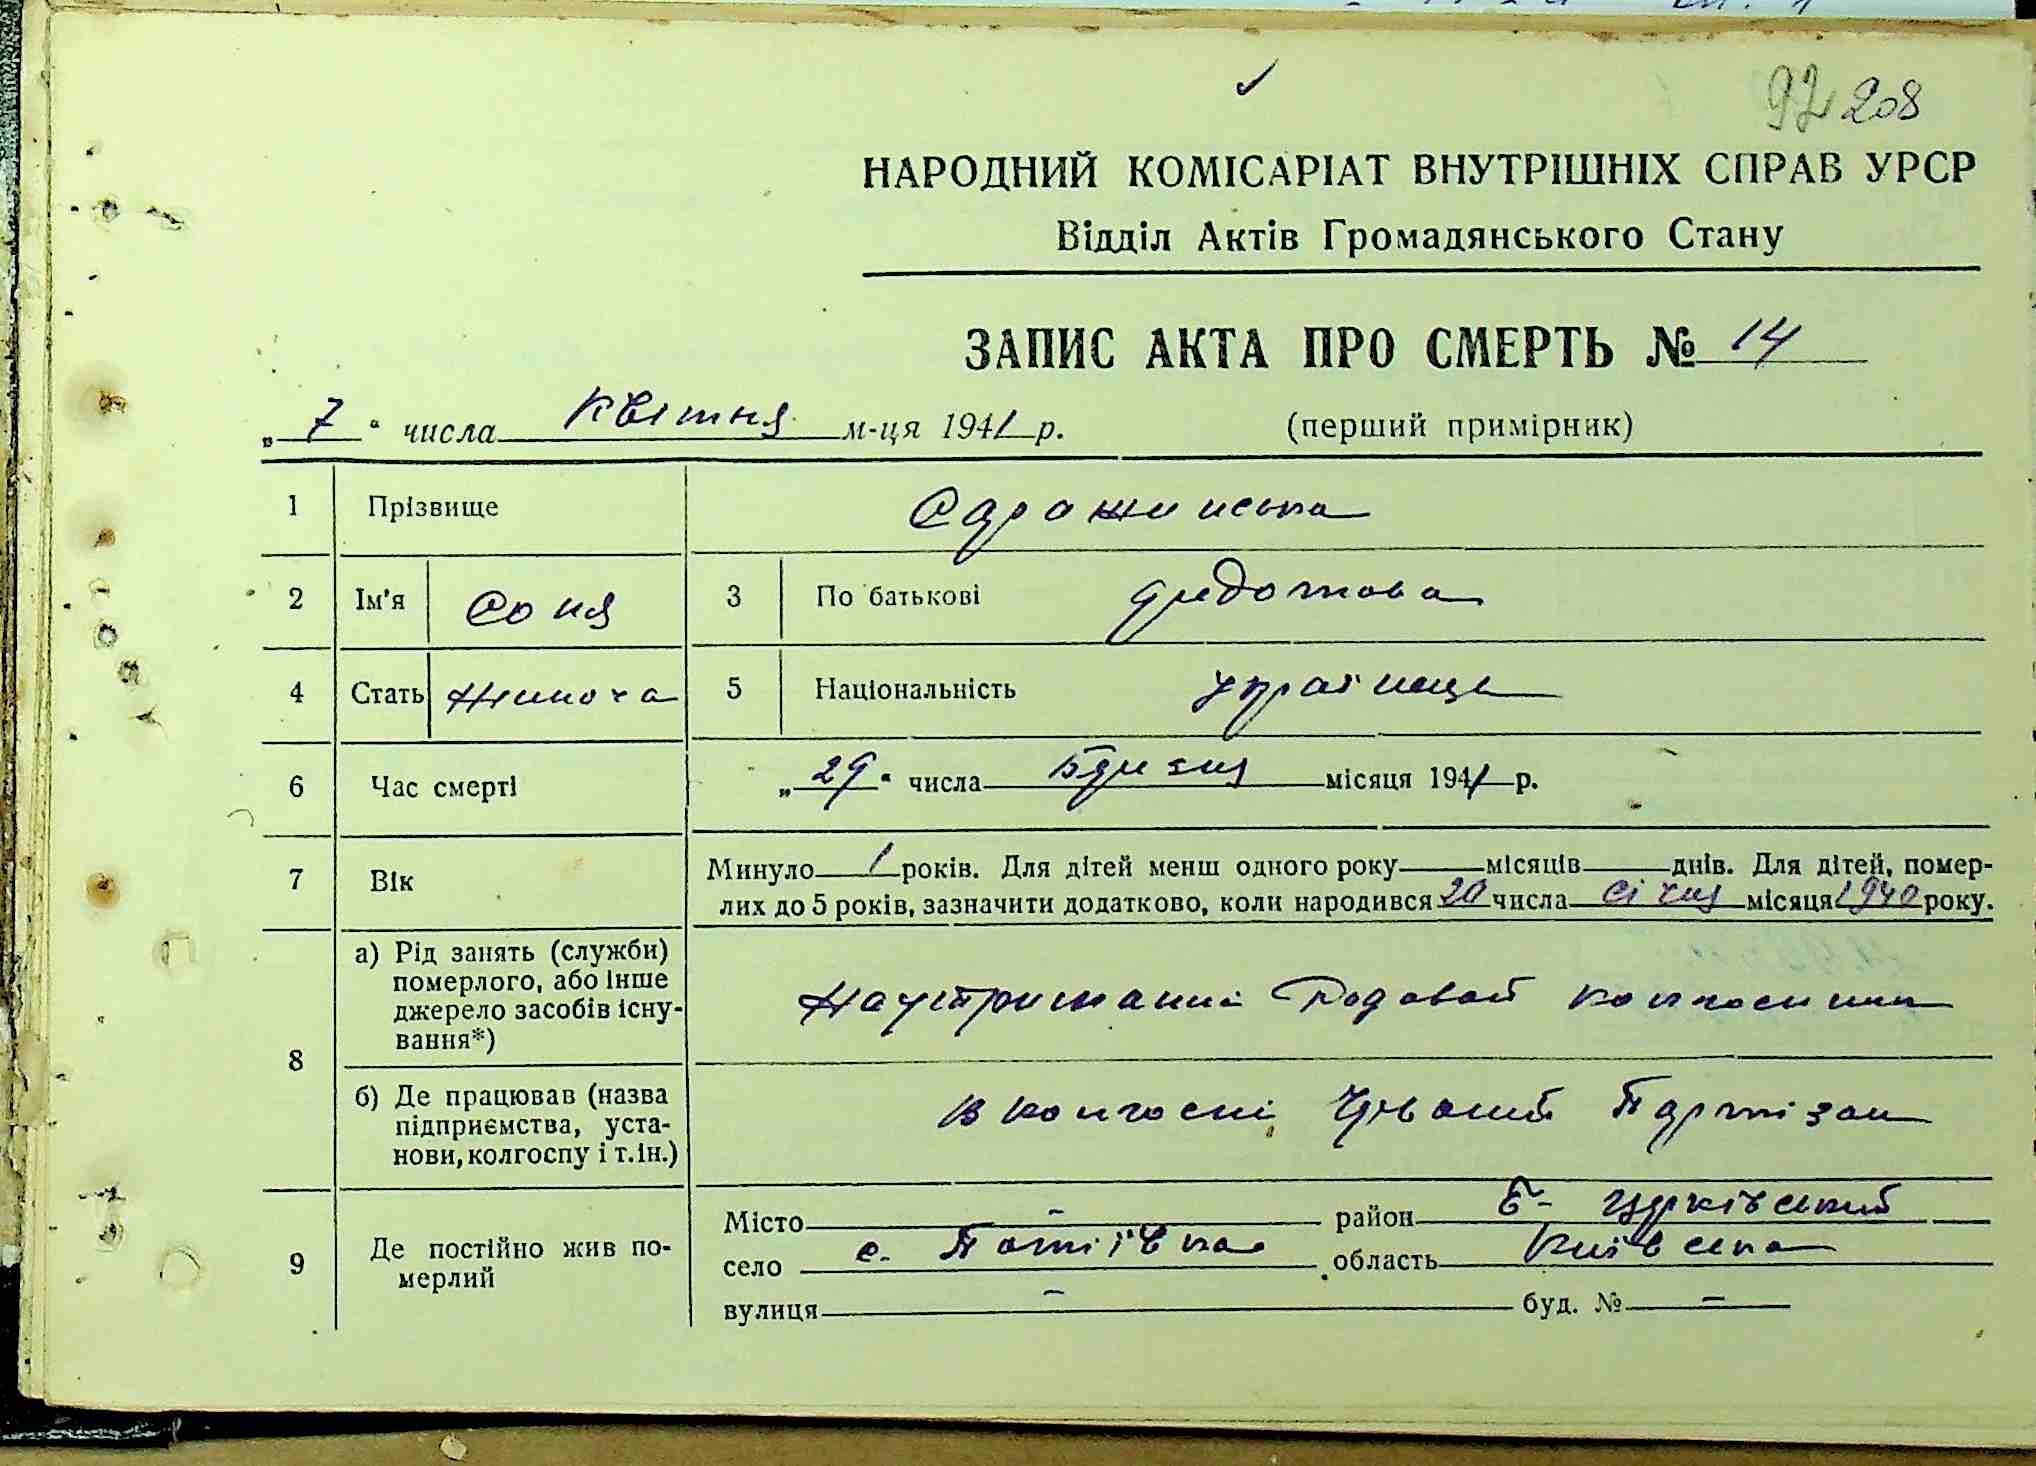 92 208
НАРОДНИЙ КОМІСАРІАТ ВНУТРІШНІХ СПРАВ УРСР
Відділ Актів Громадянського Стану
ЗАПИС АКТА ПРО СМЕРТЬ № 14
„7“ числа квітня м-ця 1941 р. (перший примірник)
1 Прізвище
2 Ім'я Соня 3 По батькові Федотова
4 Стать жиноча 5 Національність українця
6 Час смерті „29“ числа Бризня місяця 1941 р.
7 Вік Минуло 1 років. Для дітей менш одного року місяців днів. Для дітей, помер-
лих до 5 років, зазначити додатково, коли народився 20 числа січня місяця 1940 року.
8 а) Рід занять (служби)
померлого, або інше
джерело засобів існу-
вання*)
На утриманні колгосники
б) Де працював (назва
підприємства, уста-
нови, колгоспу і т.ін.)
В колгоспі Червоний Партізан
9 Де постійно жив по-
мерлий
Місто - район Б-Церківський
село с. Потіївка область Київська
вулиця - буд. № -